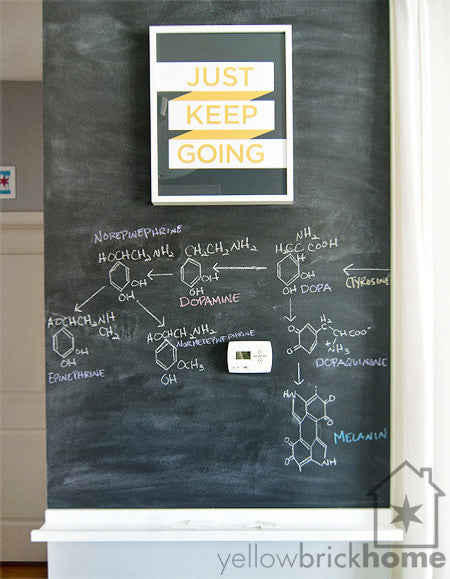 JUST
KEEP
GOING
NOREPINEPHRINE
NH₂
HOCHCH₂NH₂
CH₂CH₂NH₂
H₂C CHCOOH
OH
OH
OH
OH
OH
OH
DOPAMINE
DOPA
(TYROSINE
HOCHCH₂NH
CH₃
OH
OH
EPINEPHRINE
HOCHCH₂NH₂
NORMETEPINEPHRINE
OCH₃
OH
O
O
H₂
CHCOO⁻
+NH₃
DOPAQUINONE
HN
O
O
O
MELANIN
NH
yellowbrickhome